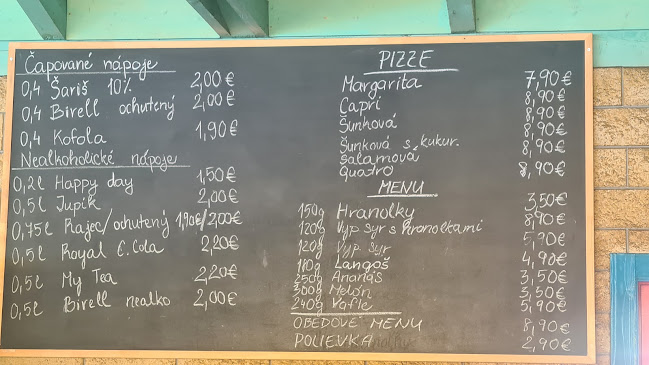 Čapované nápoje
0,4 Šariš 10% 2,00€
0,4 Birell ochutený 2,00€
0,4 Kofola 1,90€
Nealkoholické nápoje
0,2l Happy day 1,50€
0,5l Jupík 2,00€
0,45l Rajec/ochutený 1,90€/2,00€
0,5l Royal C.Cola 2,20€
0,5l My Tea 2,20€
0,5l Birell nealko 2,00€
PIZZE
Margarita 7,90€
Capri 8,90€
Šunková 8,90€
Šunková s kukur. 8,90€
Salamová 8,90€
Quadro 8,90€
MENU
150g Hranolky 3,50€
120g Vyp syr s hranolkami 8,90€
120g Vyp. syr 5,90€
180g Langoš 4,90€
250g Ananás 3,50€
300g Melón 3,50€
240g Vafle 5,90€
OBEDOVÉ MENU 8,90€
POLIEVKA 2,90€